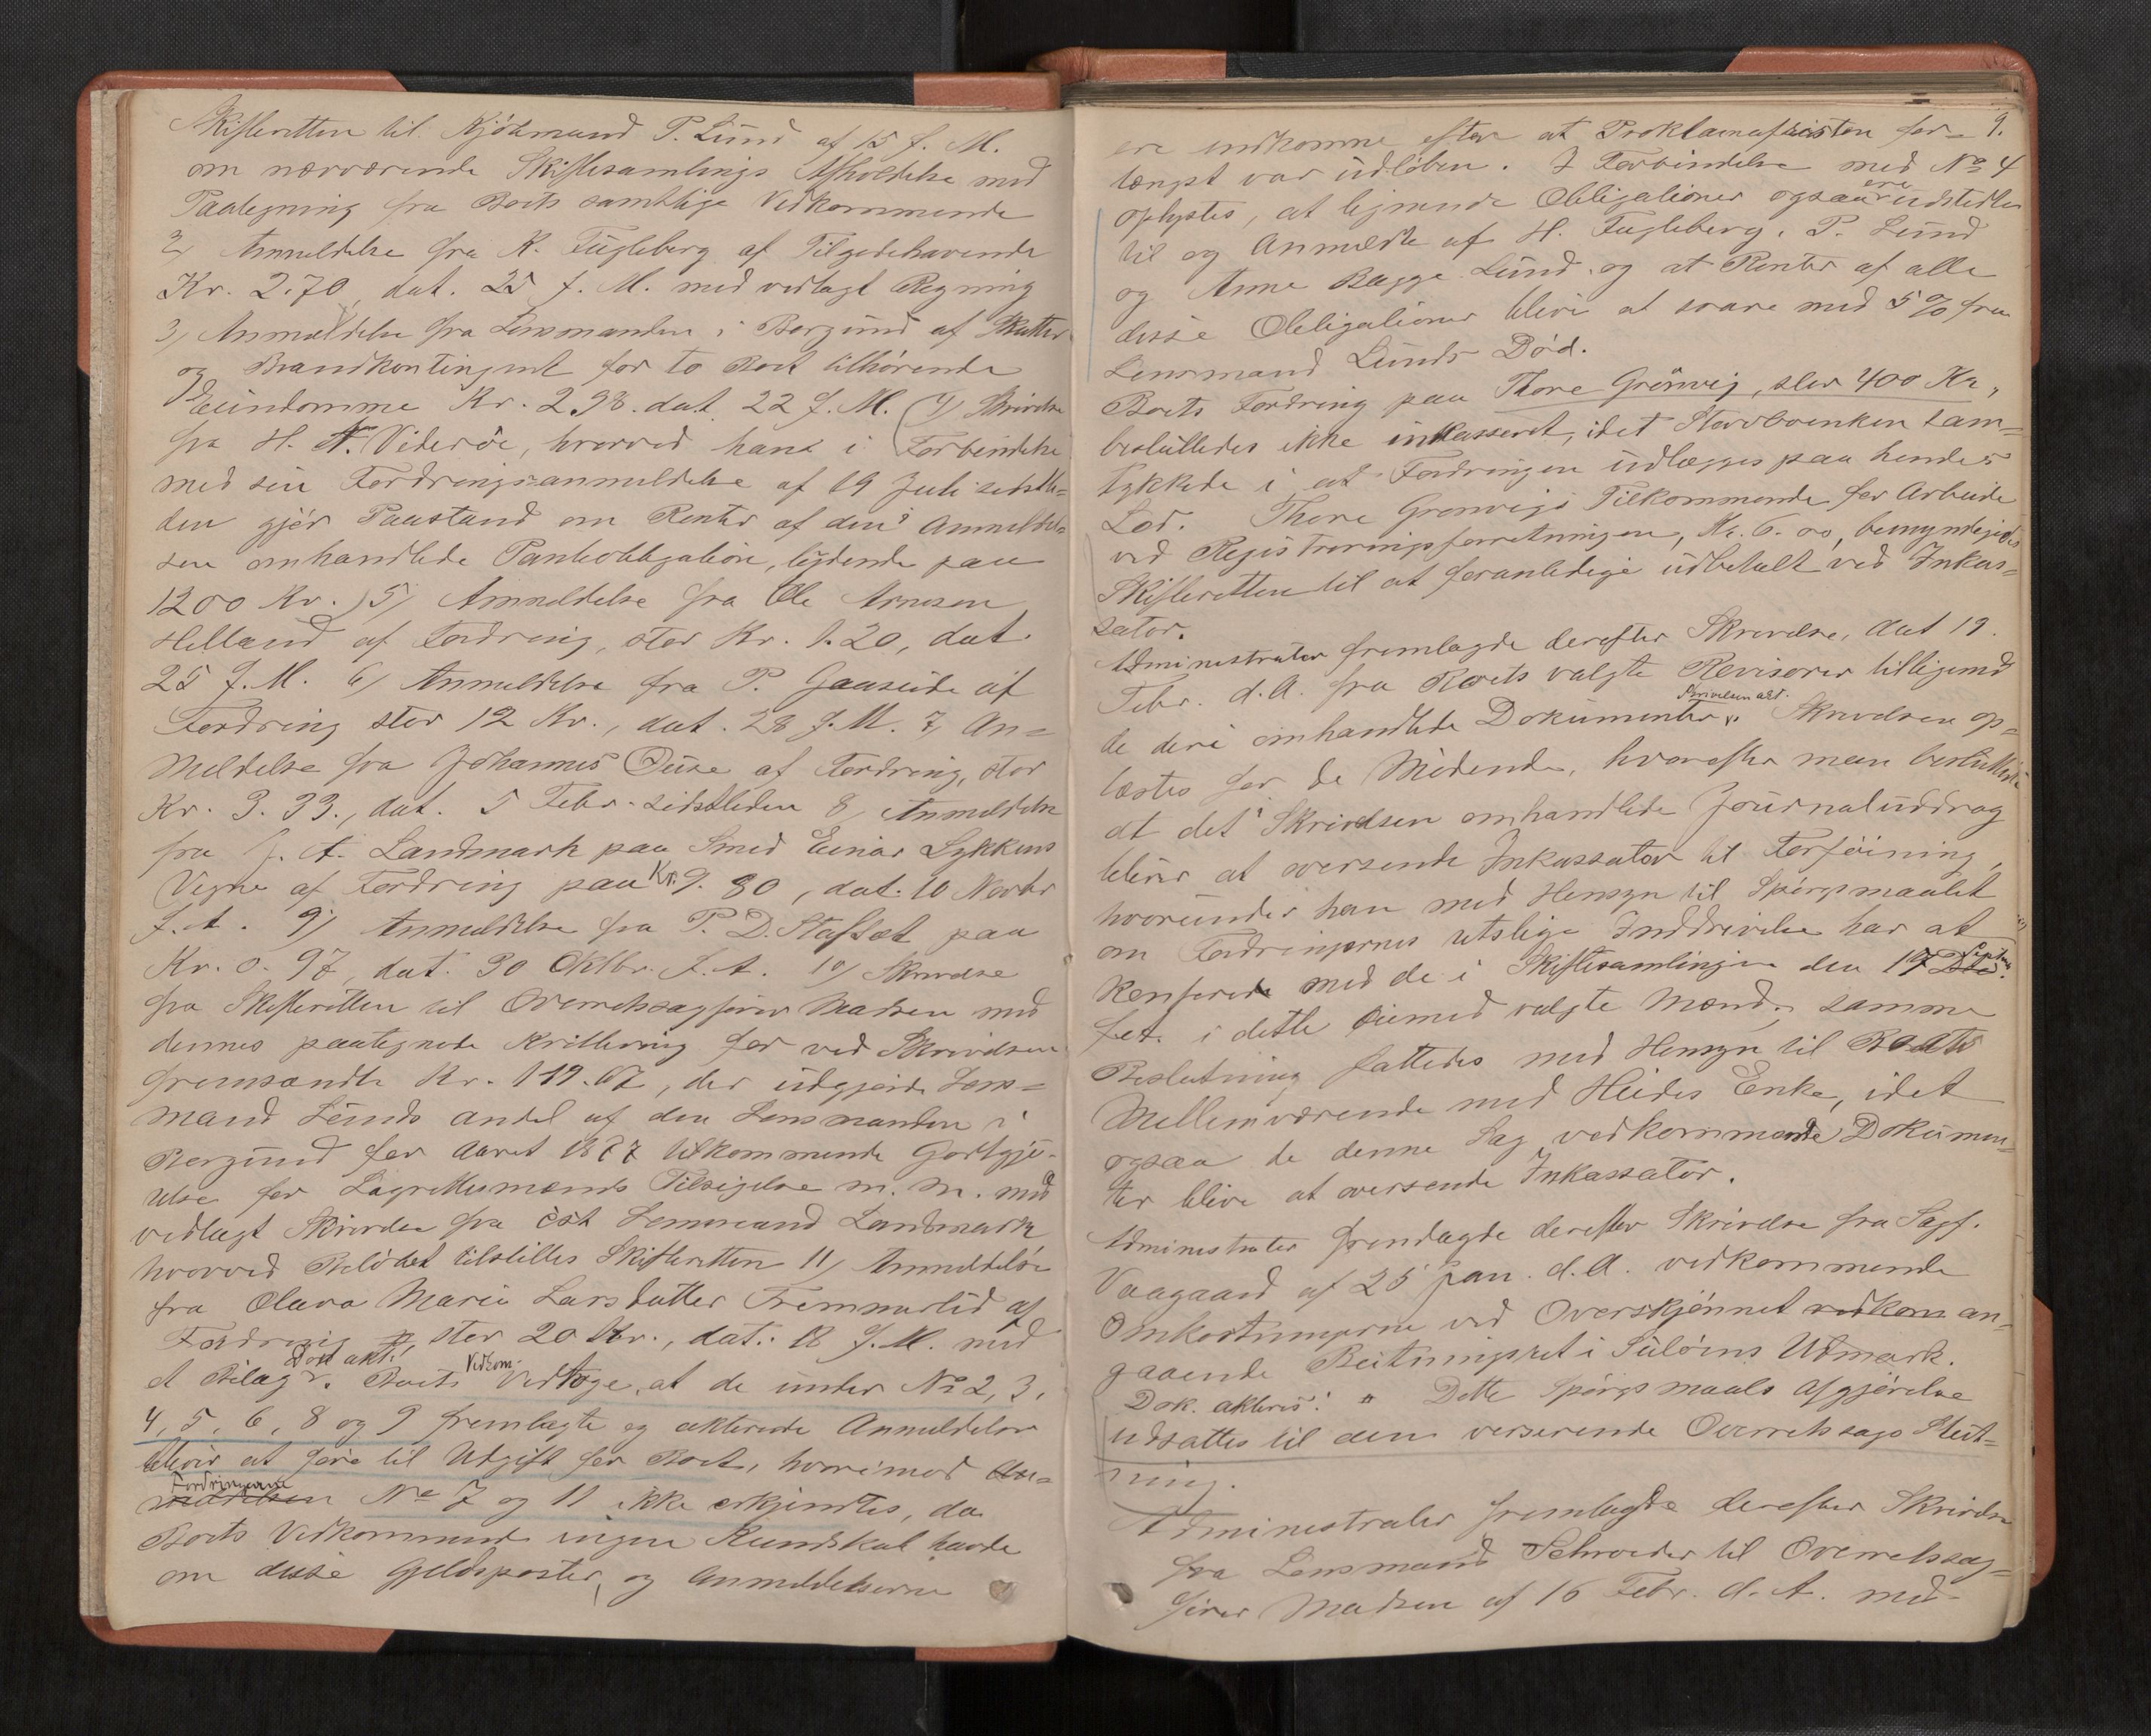 Skifteretten til Kjøbmand P. Lund af 15 f. M.
om nærværende Skiftesamlings Afholdelse med
Paategning fra Boets samtlige Vedkommende
2) Anmeldelse fra K. Fugleberg af Tilgodehavende
Kr. 2.70, dat. 25 f. M. med vedlagt Regning
3) Anmeldelse fra Lensmanden i Borgund af Skatter
og Brandkontingent for to Boet tilhørende
Eiendomme Kr. 2.98. dat 22 f. M. (4) Skrivelse
fra H. N. Viderøe, hvorved hans i Forbindelse
med sin Fordringsanmeldelse af 19 Juli sidstle=
den gjør Paastand om Renter af den i Anmeldel=
sen omhandlede Panteobligation, lydende paa
1200 Kr.) 5) Anmeldelse fra Ole Arnesen
Helland af Fordring, stor Kr. 1.20, dat.
25 f. M. 6) Anmeldelse fra P. Gaaseide af
Fordring stor 12 Kr., dat. 28 f. M. 7) An=
meldelse fra Johannes Ouse af Fordring, stor
Kr. 3.33., dat. 5 Febr. sidstleden 8) Anmeldelse
fra J. A. Landmark paa Smed Einar Lykkens
Vegne af Fordring paa Kr. 9.80, dat. 10 Novbr
f. A. 9) Anmeldelse fra P. D. Stafset paa
Kr. 0.97, dat. 30 Oktbr. f. A. 10) Skrivelse
fra Skifteretten til Overretssagfører Madsen med
dennes paategnede Kvittering for ved Skrivelsen
fremsendte Kr. 119.67, der udgjorde Lens=
mand Lunds andel af den Lensmanden i
Borgund for Aaret 1887 tilkommende Godtgjø=
relse for Lagrettesmænds Tilsigelse m. m. med
vedlagt Skrivelse fra cst Lensmand Landmark
hvorved Beløbet tilstilles Skifteretten 11) Anmeldelse
fra Olava Marie Larsdatter Fremmerlid af
Fordring, stor 20 Kr., dat. 18 f. M. med
et Bilag. Dok akt. Boets Vedkom. vedtoge, at de under No 2, 3,
4, 5, 6, 8 og 9 fremlagte og akterede Anmeldelser
bliver at føre til Udgift for Boet, hvorimod An=
meldelsen Fordringerne No 7 og 11 ikke erkjendtes, da
Boets Vedkommende ingen Kundskab havde
om disse Gjeldsposter, og Anmeldelserne
9.
ere indkomne efter at Proklamafristen for=
længst var udløben. I Forbindelse med No 4
oplystes, at lignende Obligationer ogsaa ere udstedte
til og Anmeldte af H. Fugleberg, P. Lund
og Anne Bagge Lund, og at Renter af alle
disse Obligationer blive at svare med 5 % fra
Lensmand Lunds Død.
Boets Fordring paa Thore Grønvig, stor 400 Kr.,
besluttedes ikke inkasseret, idet Stervboenken sam=
tykkede i at Fordringen udlægges paa hendes
Lod. Thore Grønvigs Tilkommende for Arbeide
ved Registreringsforretningen, Kr. 6.00, bemyndigedes
Skifteretten til at foranledige udbetalt ved Inkas=
sator.
Administrator fremlagde derefter Skrivelse, dat 19.
Febr. d. A. fra Boets valgte Revisorer tilligemed
de deri omhandlede Dokumenter. Skrivelsen akt. Skrivelsen op=
læstes for de Mødende, hvorefter man besluttede
at det i Skrivelsen omhandlede Journaluddrag
bliver at oversende Inkassator til Forføining,
hvorunder han med Hensyn til Spørgsmaalet
om Fordringernes retslige Inddrivelse har at
konferere med de i Skiftesamlingen den 17 Septbr.
f. A. i dette Øiemed valgte Mænd; samme
Beslutning fattedes med Hensyn til Boets
Mellemværende med Heides Enke, idet
ogsaa de denne Sag vedkommende Dokumen=
ter blive at oversende Inkassator.
Administrator fremlagde derefter Skrivelse fra Sagf.
Vaagaard af 25 Jan. d. A. vedkommende
Omkostningerne ved Overskjønnet vedkom an=
gaaende Beitningsret i Suløens Udmark.
Dok. akteres: " Dette Spørgsmaals Afgjørelse
udsattes til den verserende Overretssags Slut=
ning.
Administrator fremlagde derefter Skrivelse
fra Lensmand Schrøeder til Overretssag=
fører Madsen af 16 Febr. d. A. med